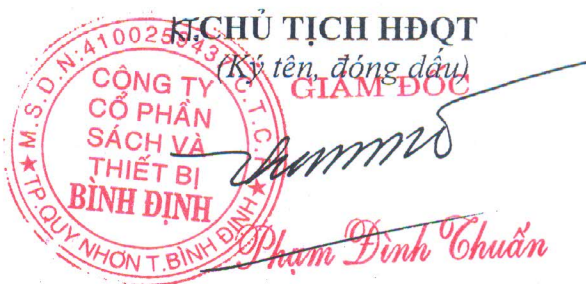 KT.CHỦ TỊCH HĐQT
(Ký tên, đóng dấu)
GIÁM ĐỐC
M.S.D.N:41002 C.T.C.P
CÔNG TY
CỔ PHẦN
SÁCH VÀ
THIẾT BỊ
BÌNH ĐỊNH
TP.QUY NHƠN T.BÌNH ĐỊNH
Phạm Đình Chuẩn